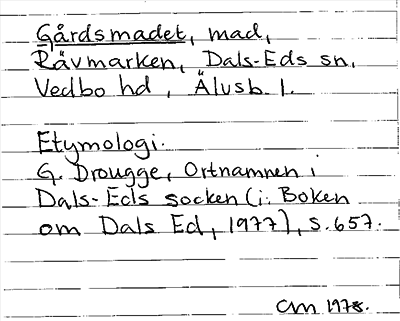 Gårdsmadet, mad,
Rävmarken, Dals-Eds sn,
Vedbo hd, Älvsb. l.
Etymologi.
G. Drougge, Ortnamnen i
Dals-Eds socken (i: Boken
om Dals Ed, 1977), s. 657.
CM 1978.